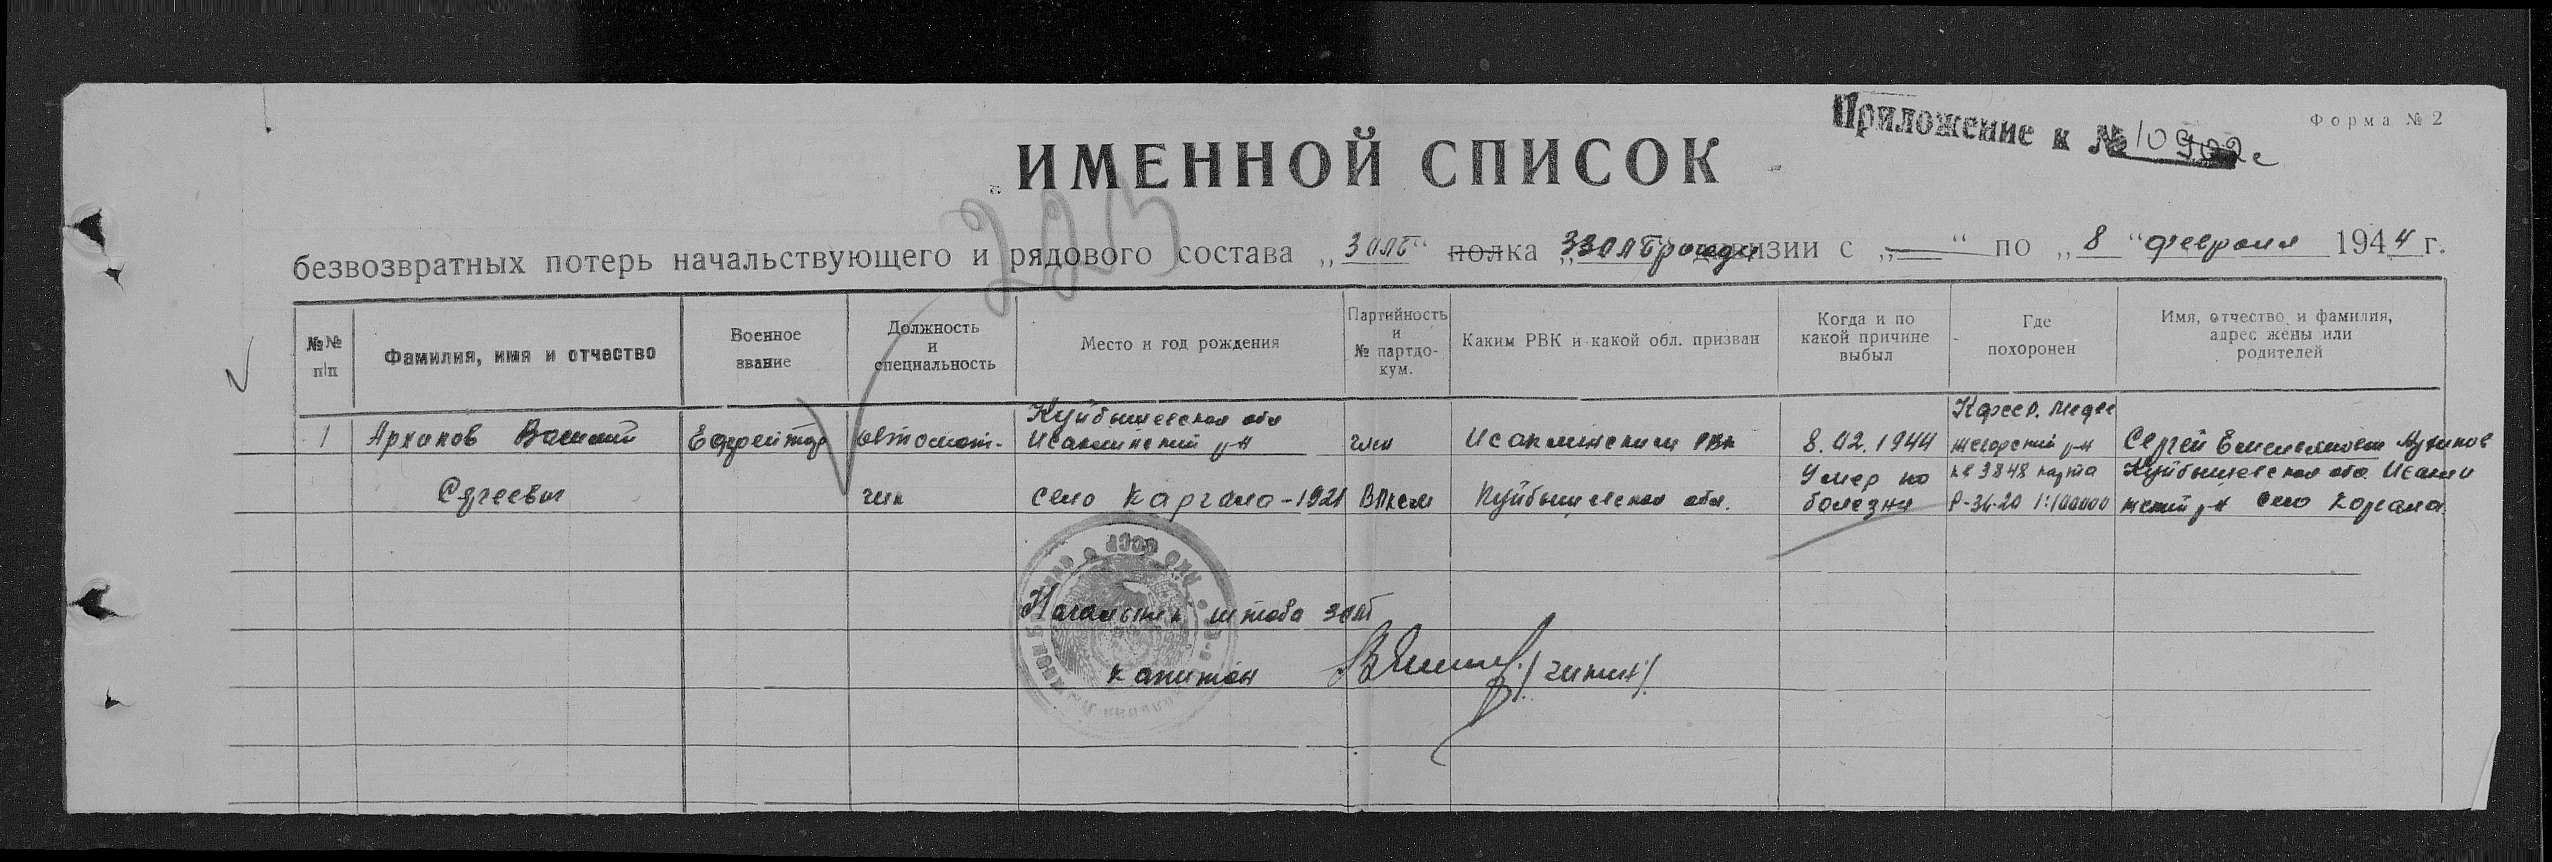 Приложение к № 10902с
Форма № 2
ИМЕННОЙ СПИСОК
225
безвозвратных потерь начальствующего и рядового состава „3 олб“ полка „33 олбригады дивизии с „ “ по „8“ февраля 1944 г.
№№ п/п
Фамилия, имя и отчество
Военное звание
Должность и специальность
Место и год рождения
Партийность и № партдокум.
Каким РВК и какой обл. призван
Когда и по какой причине выбыл
Где похоронен
Имя, отчество и фамилия, адрес жены или родителей
1
Архипов Василий
Сергеевич
Ефрейтор
автомат-
чик
Куйбышевская обл
Исаклинский р-н
село Каргала - 1921
член
ВЛКСМ
Исаклинским РВК
Куйбышевская обл.
8.02.1944
Умер по
болезни
р-н
кв 3848 карта
Р-36-20 1:100000
Сергей Емельянович Архипов
Куйбышевская обл. Исаклин
ский р-н село Каргала
Начальник штаба 3 олб
капитан